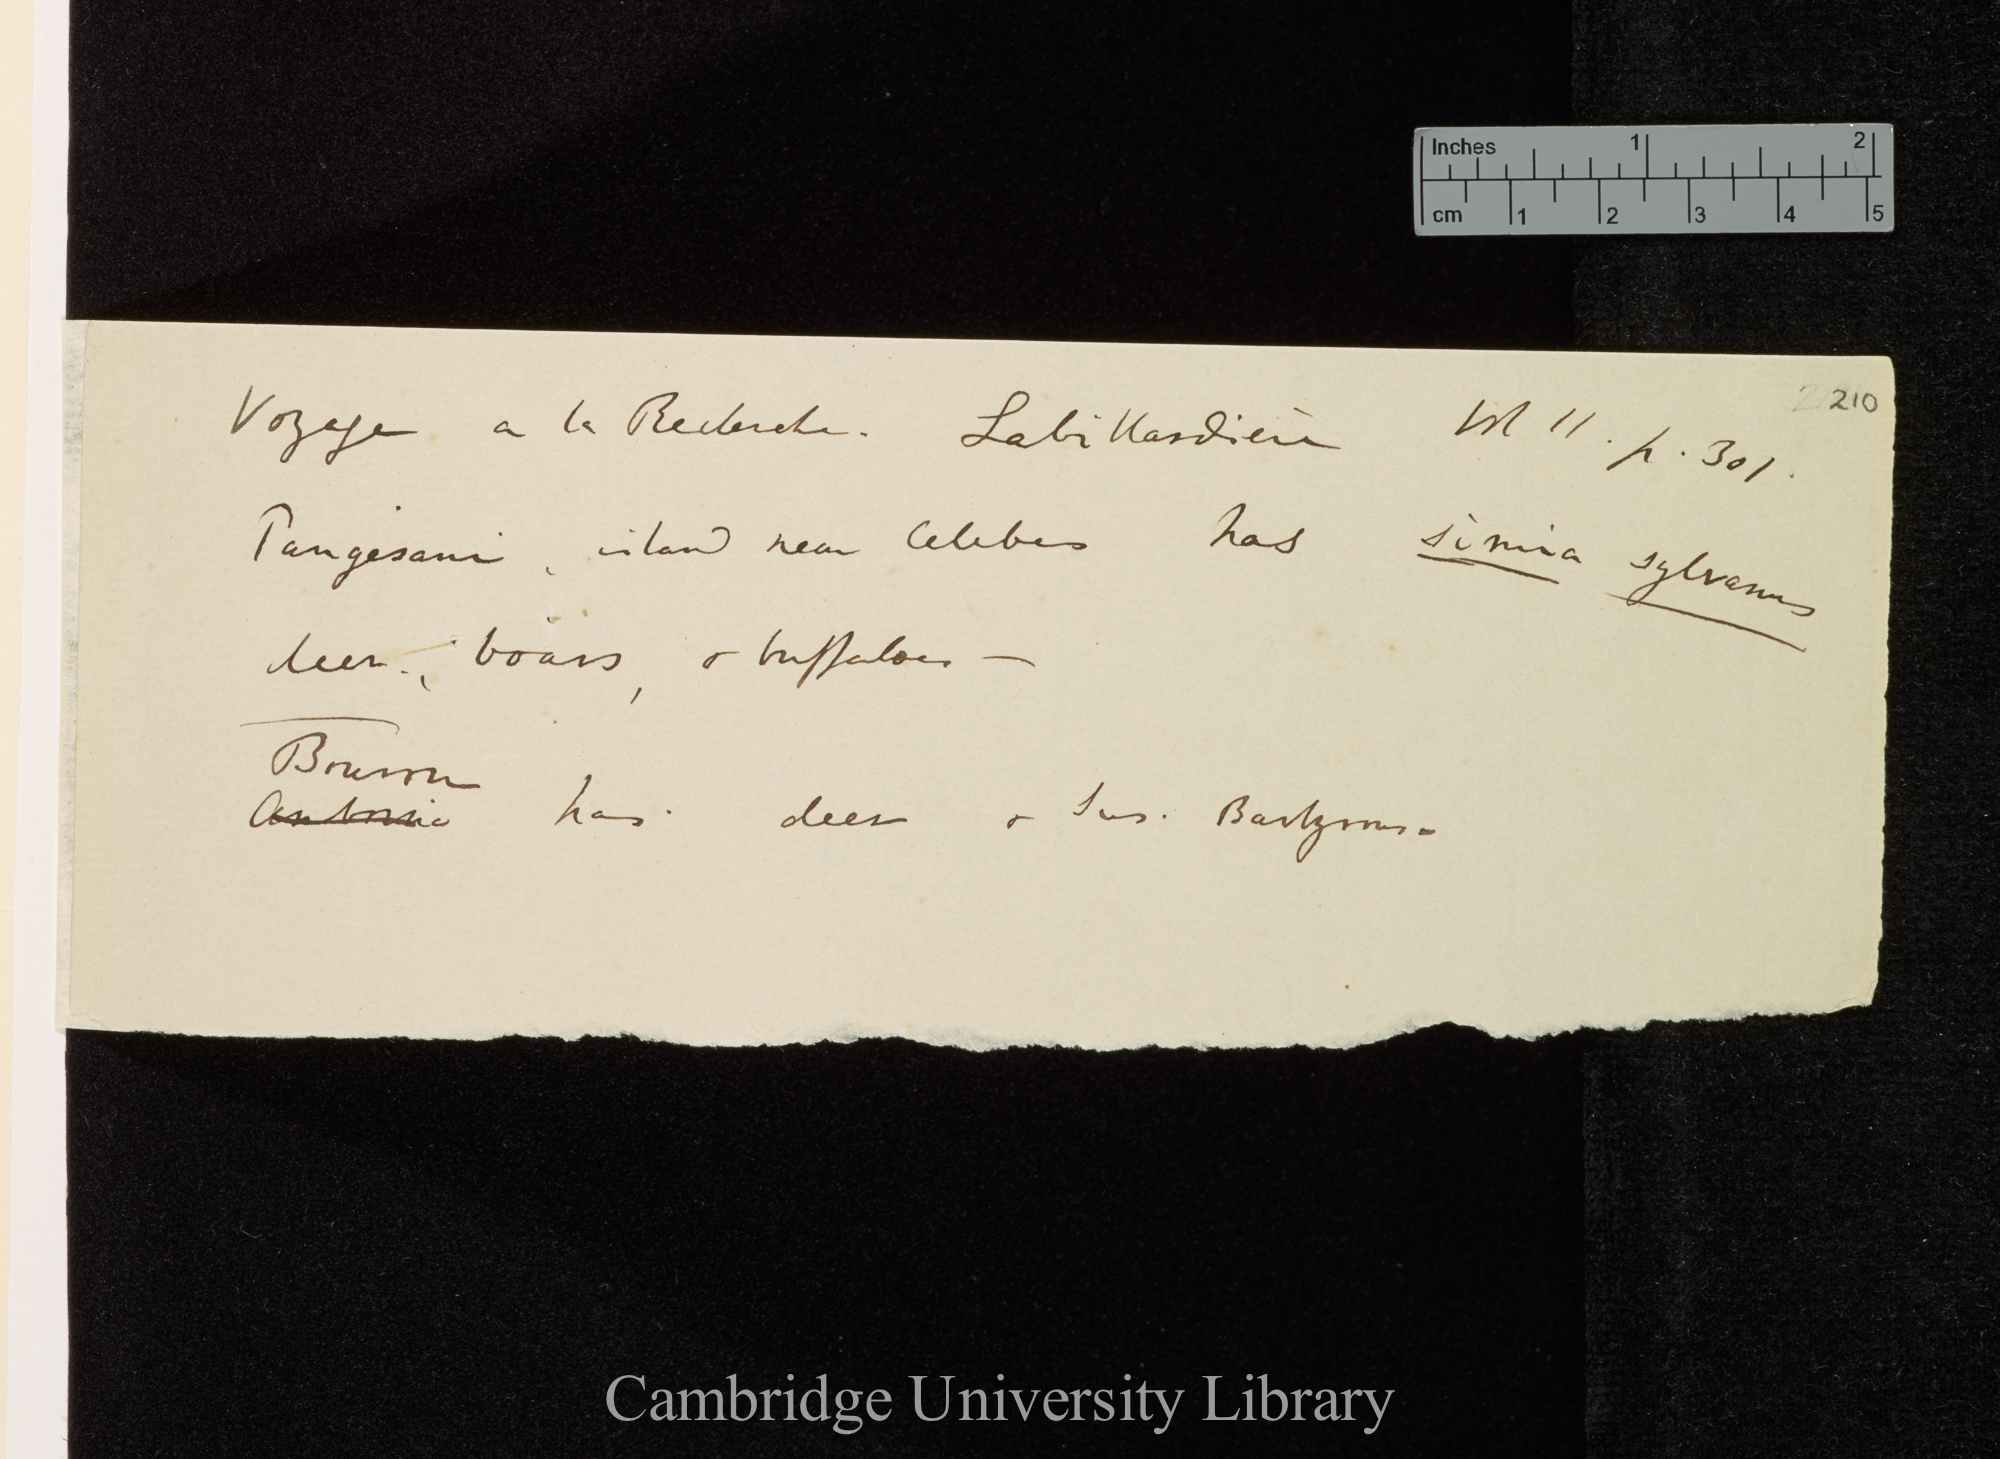 Inches 1 2
cm 1 2 3 4 5
210
Voyage a la Recherche. Labillardiere Vol II. p. 301.
Pangesani, island near Celebes has simia sylvanus
deer, boars, & buffaloes —
Bourou
Amboina has deer & Sus. Barbyrous.
Cambridge University Library